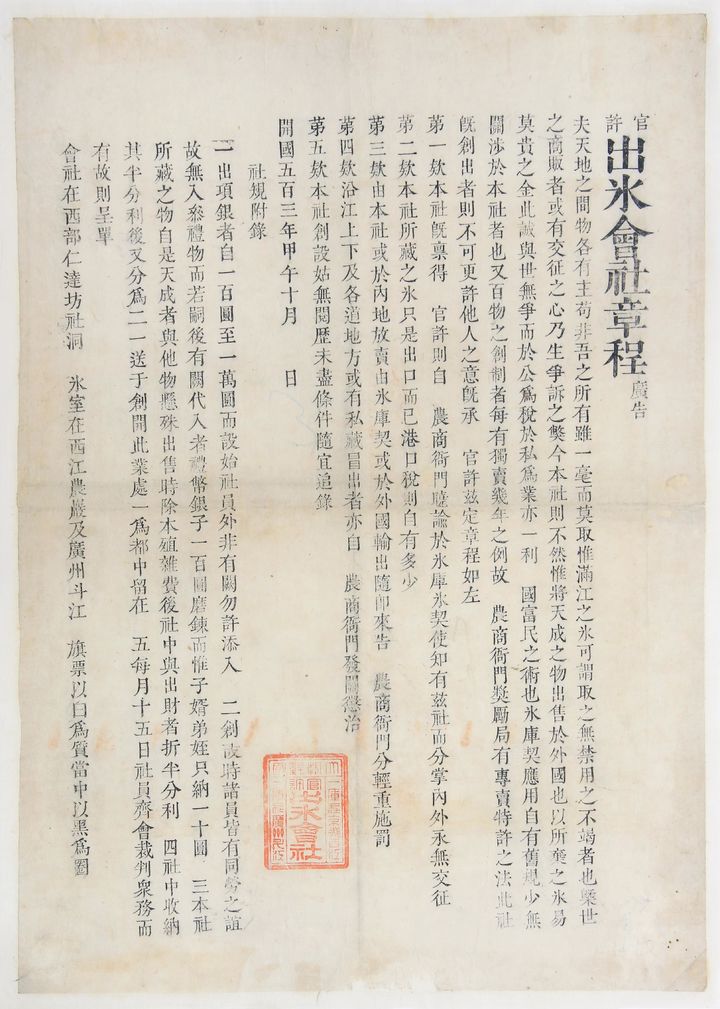 官許 出氷會社章程 廣告
夫天地之間物各有主苟非吾之所有雖一毫而莫取惟滿江之氷可謂取之無禁用之不竭者也槩世
之商販者或有交征之心乃生爭訴之獘今本社則不然惟將天成之物出售於外國也以所棄之氷易
莫貴之金此誠與世無爭而於公爲稅於私爲業亦一利 國富民之術也氷庫契應用自有舊規少無
關涉於本社者也又百物之創制者每有獨賣幾年之例故 農商衙門奬勵局有專賣特許之法此社
旣創出者則不可更許他人之意旣承 官許玆定章程如左
苐一欵本社旣稟得 官許則自 農商衙門發諭於氷庫氷契使知有玆社而分掌內外永無交征
苐二欵本社所藏之氷只是出口而已港口稅則自有多少
苐三欵由本社或於內地放賣由氷庫契或於外國輸出隨卽來告 農商衙門分輕重施罰
苐四欵沿江上下及各道地方或有私藏冒出者亦自 農商衙門發關懲治
苐五欵本社創設姑無閱歷未盡條件隨宜追錄
開國五百三年甲午十月 日
社規附錄
一出項銀者自一百圓至一萬圓而設始社員外非有闕勿許添入 二創設時諸員皆有同勞之誼
故無入參禮物而若嗣後有闕代入者禮幣銀子一百圓磨鍊而惟子婿弟姪只納一十圓 三本社
所藏之物自是天成者與他物懸殊出售時除本殖雜費後社中與出財者折半分利 四社中收納
其半分利後又分爲二一送于創開此業處一爲都中留在 五每月十五日社員齊會裁判衆務而
有故則呈單
會社在西部仁達坊社洞 氷室在西江農巖及廣州斗江 旗票以白爲質當中以黑爲圈
出氷會社